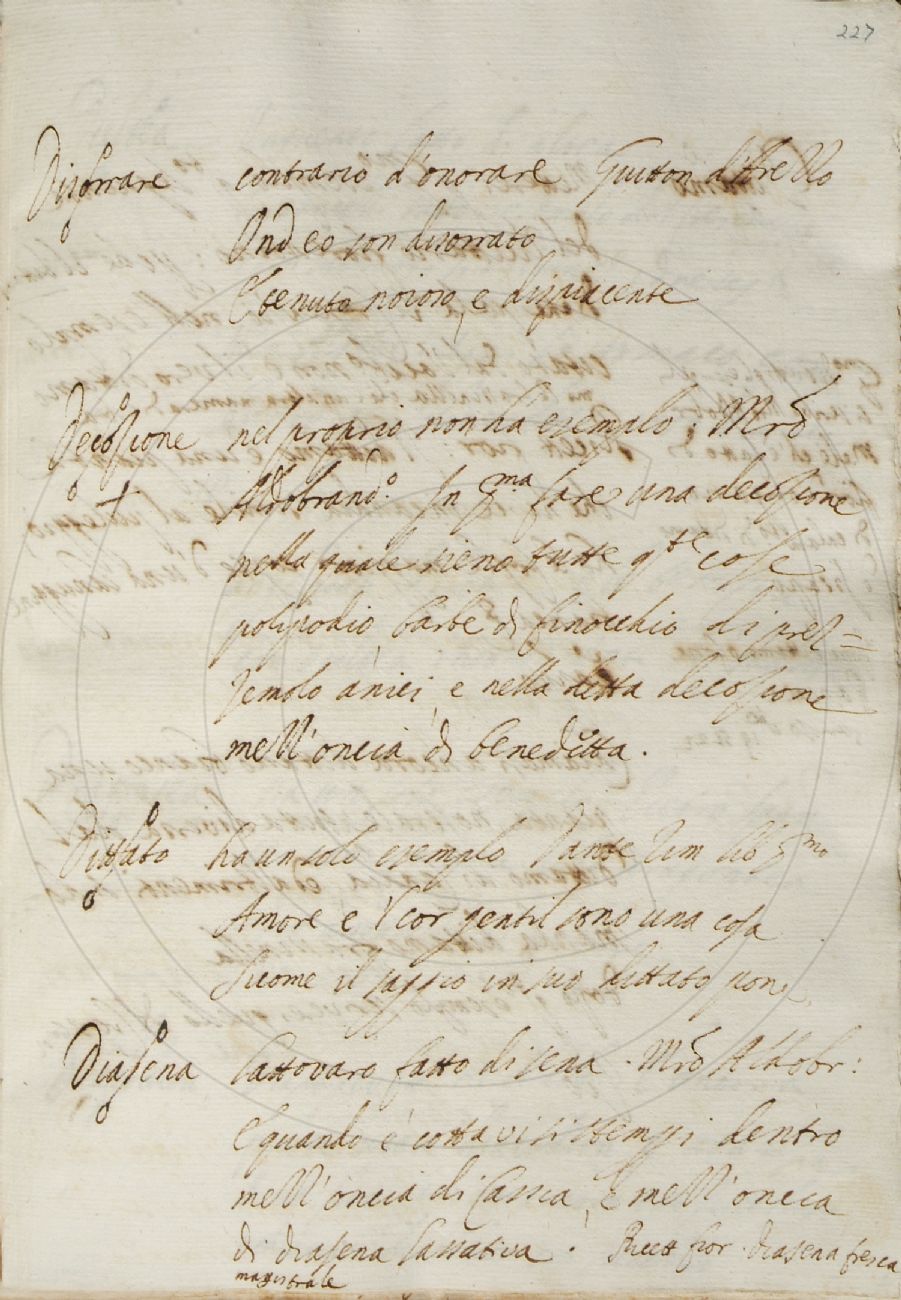 227
Disorrare contrario d'onorare Guitton d'Arezzo
Ond eo son disorrato
E tenuto noioso, e dispiacente
Decozione nel proprio non ha esempio: Mrõ
Aldobrand.o In p.ma fare una decozione
nella quale sieno tutte q.te cose
polipodio, barbe di finocchio di prez=
zemolo anici, e nella detta decozione
mezz'oncia di benedetta.
Dittato ha un solo esempio Dante Rim lib p.mo
Amore e 'l cor gentil sono una cosa
Sicome il saggio in suo dittato pone
Diasena Lattovaro fatto di sena. Mrõ Aldobr:
E quando è cotta vi si stempi dentro
mezz'oncia di Cassia, e mezz'oncia
di diasena lassativa. Ricett fior. diasena fresca
magistrale